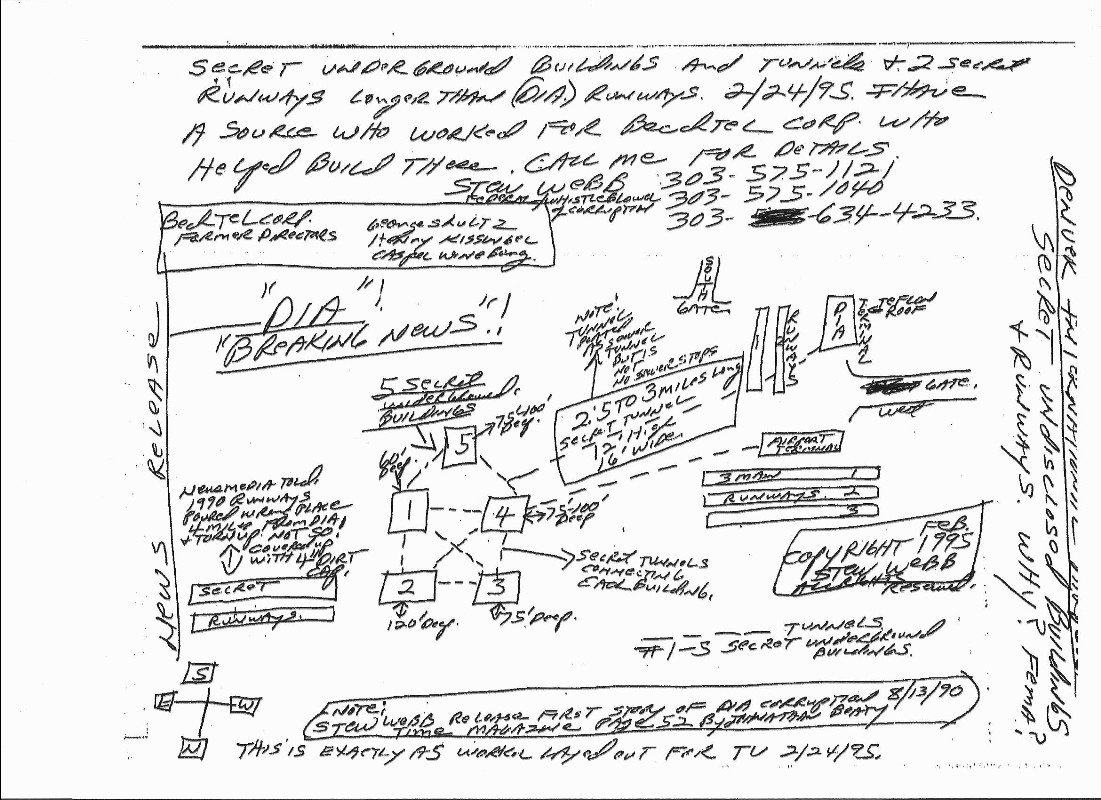 SECRET UNDERGROUND BUILDINGS AND TUNNELS + 2 SECRET
RUNWAYS LONGER THAN (DIA) RUNWAYS. 2/24/95. I HAVE
A SOURCE WHO WORKED FOR BECHTEL CORP. WHO
HELPED BUILD THERE. CALL ME FOR DETAILS.
STEW WEBB 303-575-1121
FEDERAL WHISTLEBLOWER 303-575-1040
OF CORRUPTION 303- 634-4233.
BECHTEL CORP.
FORMER DIRECTORS
GEORGE SHULTZ
HENRY KISSINGER
CASPER WINEBURG.
NEWS RELEASE
"DIA"!
"BREAKING NEWS"!
SOUTH
GATE
NOTE!
TUNNEL
AS SEWER
TUNNEL
BUT IS
NOT
NO SEWER STOPS
1
2
RUNWAYS
DIA
TERMINAL
TEFLON
ROOF
GATE.
WEST
5 SECRET
UNDERGROUND
BUILDINGS
75-100'
DEEP.
5
2.5 TO 3 MILES LONG
SECRET TUNNEL
12' HIGH
16' WIDE.
AIRPORT
TERMINAL
3 MAIN 1
RUNWAYS. 2
3
60'
DEEP
1
4
75'-100'
DEEP
2
3
120' DEEP.
75' DEEP.
SECRET TUNNELS
CONNECTING
EACH BUILDING.
NEWSMEDIA TOLD:
1990 RUNWAYS
POURED WRONG PLACE
4 MILES FROM DIA
+ TORN UP. NOT SO!
COVERED UP
WITH 4" DIRT
CAP.
SECRET
RUNWAYS.
FEB.
COPYRIGHT 1995
STEW WEBB
ALL RIGHTS RESERVED.
TUNNELS
#1-5 SECRET UNDERGROUND
BUILDINGS.
S
E
W
N
NOTE: 8/13/90
STEW WEBB RELEASE FIRST STORY OF DIA CORRUPTION
TIME MAGAZINE PAGE 52 BY JONATHAN BEATY
THIS IS EXACTLY AS LAYED OUT FOR TV 2/24/95.
DENVER INTERNATIONAL
SECRET UNDISCLOSED BUILDINGS
+ RUNWAYS. WHY? FEMA?